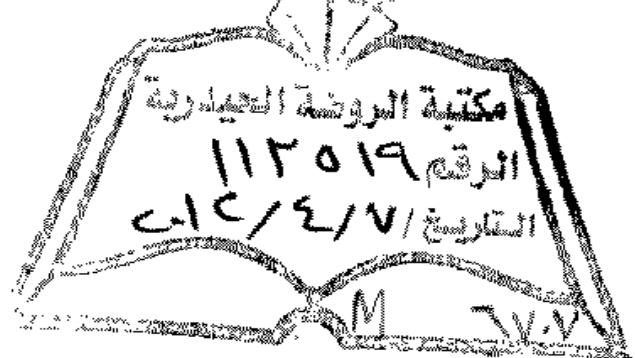 مكتبة الروضة الحيدرية
الرقم ١١٣٥١٩
التاريخ / ٧ / ٤ / ٢٠١٢
M ٦٧٠٧